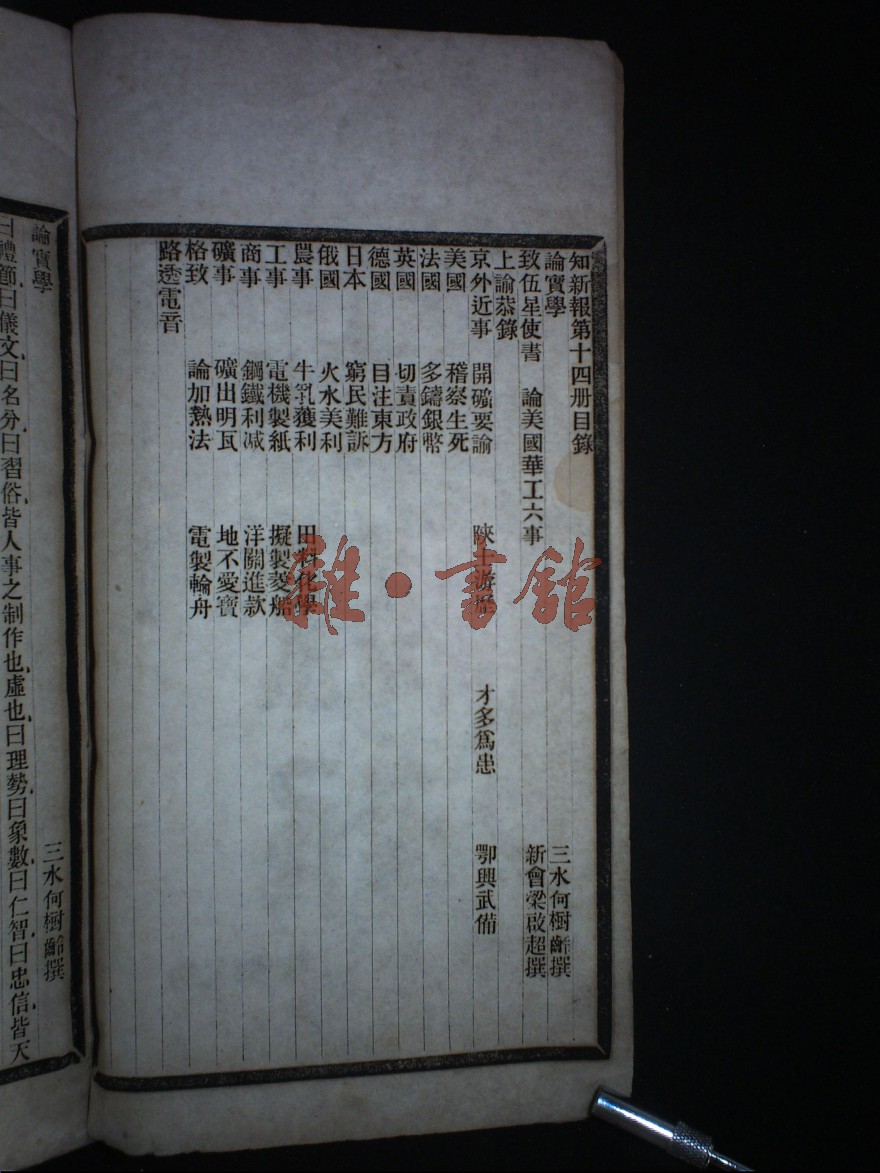 知新報第十四册目錄
論實學 三水何樹齡撰
致伍星使書 論美國華工六事 新會梁啟超撰
上諭恭錄
京外近事 開礦要論 陝士游歷 才多爲患 鄂興武備
美國 稽察生死
法國 多鑄銀幣
英國 切責政府
德國 目注東方
日本 窮民難訴
俄國 火水美利
農事 牛乳獲利 田料化學
工事 電機製紙 擬製菱船
商事 鋼鐵利減 洋關進款
礦事 礦出明瓦 地不愛寶
格致 論加熱法 電製輪舟
路透電音
論實學 三水何樹齡撰
曰禮節曰儀文曰名分曰習俗皆人事之制作也虛也曰理勢曰象數曰仁智曰忠信皆天
雜·書館